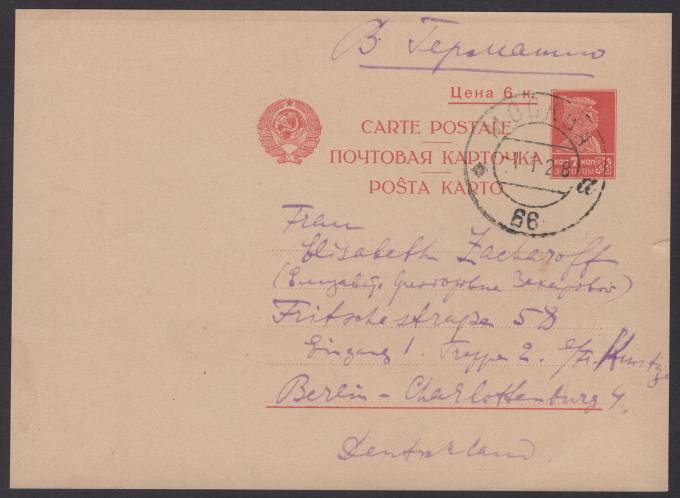 В Германию
Цена 6 к.
CARTE POSTALE
ПОЧТОВАЯ КАРТОЧКА
POŜTA KARTO
МОСКВА
66
коп 7 коп
ЗОЛОТОМ
Frau
Elisabeth Zacharoff
(Елизавете Федоровне Захаровой)
Fritschestraße 58
Eingang 1. Treppe 2.
Berlin – Charlottenburg 4.
Deutschland